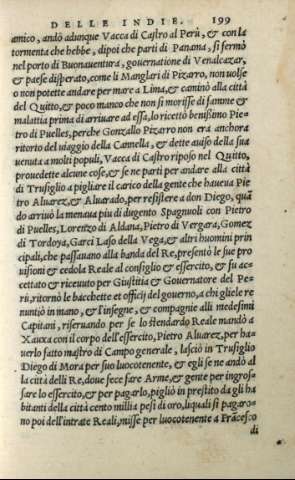 DELLE INDIE. 199
amico, andò adunque Vacca di Castro al Perù, & con la
tormenta che hebbe, dipoi che partì da Panama, si fermò
nel porto di Buonauentura, gouernatione di Venalcazar,
& paese disperato, come li Manglari di Pizarro, non uolse
o non potette andare per mare a Lima, & caminò alla città
del Quitto, & poco mancò che non si morisse di famme &
malattia prima di arriuare ad essa, lo ricettò benissimo Pie-
tro di Puelles, perche Gonzallo Pizarro non era anchora
ritorto del uiaggio della Cannella, & dette auiso della sua
uenuta a molti populi, Vacca di Castro riposò nel Quitto,
prouedette alcune cose, & se ne partì per andare alla città
di Trusiglio a pigliare il carico della gente che haueua Pie
tro Aluarez, & Aluarado, per resistere a don Diego, quā
do arriuò la menaua piu di dugento Spagnuoli con Pietro
di Puelles, Lorentzo di Aldana, Pietro di Vergara, Gomez
di Tordoya, Garci Laso della Vega, & altri huomini prin
cipali, che passauano alla banda del Re, presentò le sue pro
uisioni & cedola Reale al consiglio & essercito, & fu ac-
cettato & riceuuto per Giustitia & Gouernatore del Pe-
rù, ritornò le bacchette et officij del gouerno, a chi gliele re
nuntiò in mano, & l'insegne, & compagnie alli medesimi
Capitani, riseruando per se lo stendardo Reale mandò a
Xauxa con il corpo dell'essercito, Pietro Aluarez, per ha-
uerlo fatto mastro di Campo generale, lasciò in Trusiglio
Diego di Mora per suo luocotenente, & egli se ne andò al
la città delli Re, doue fece fare Arme, & gente per ingros-
sare lo essercito, & per pagarlo, pigliò in prestito da gli ha
bitanti della città cento millia pesi di oro, liquali si pagaro-
no poi dell'intrate Reali, misse per luocotenente a Frācesco
di